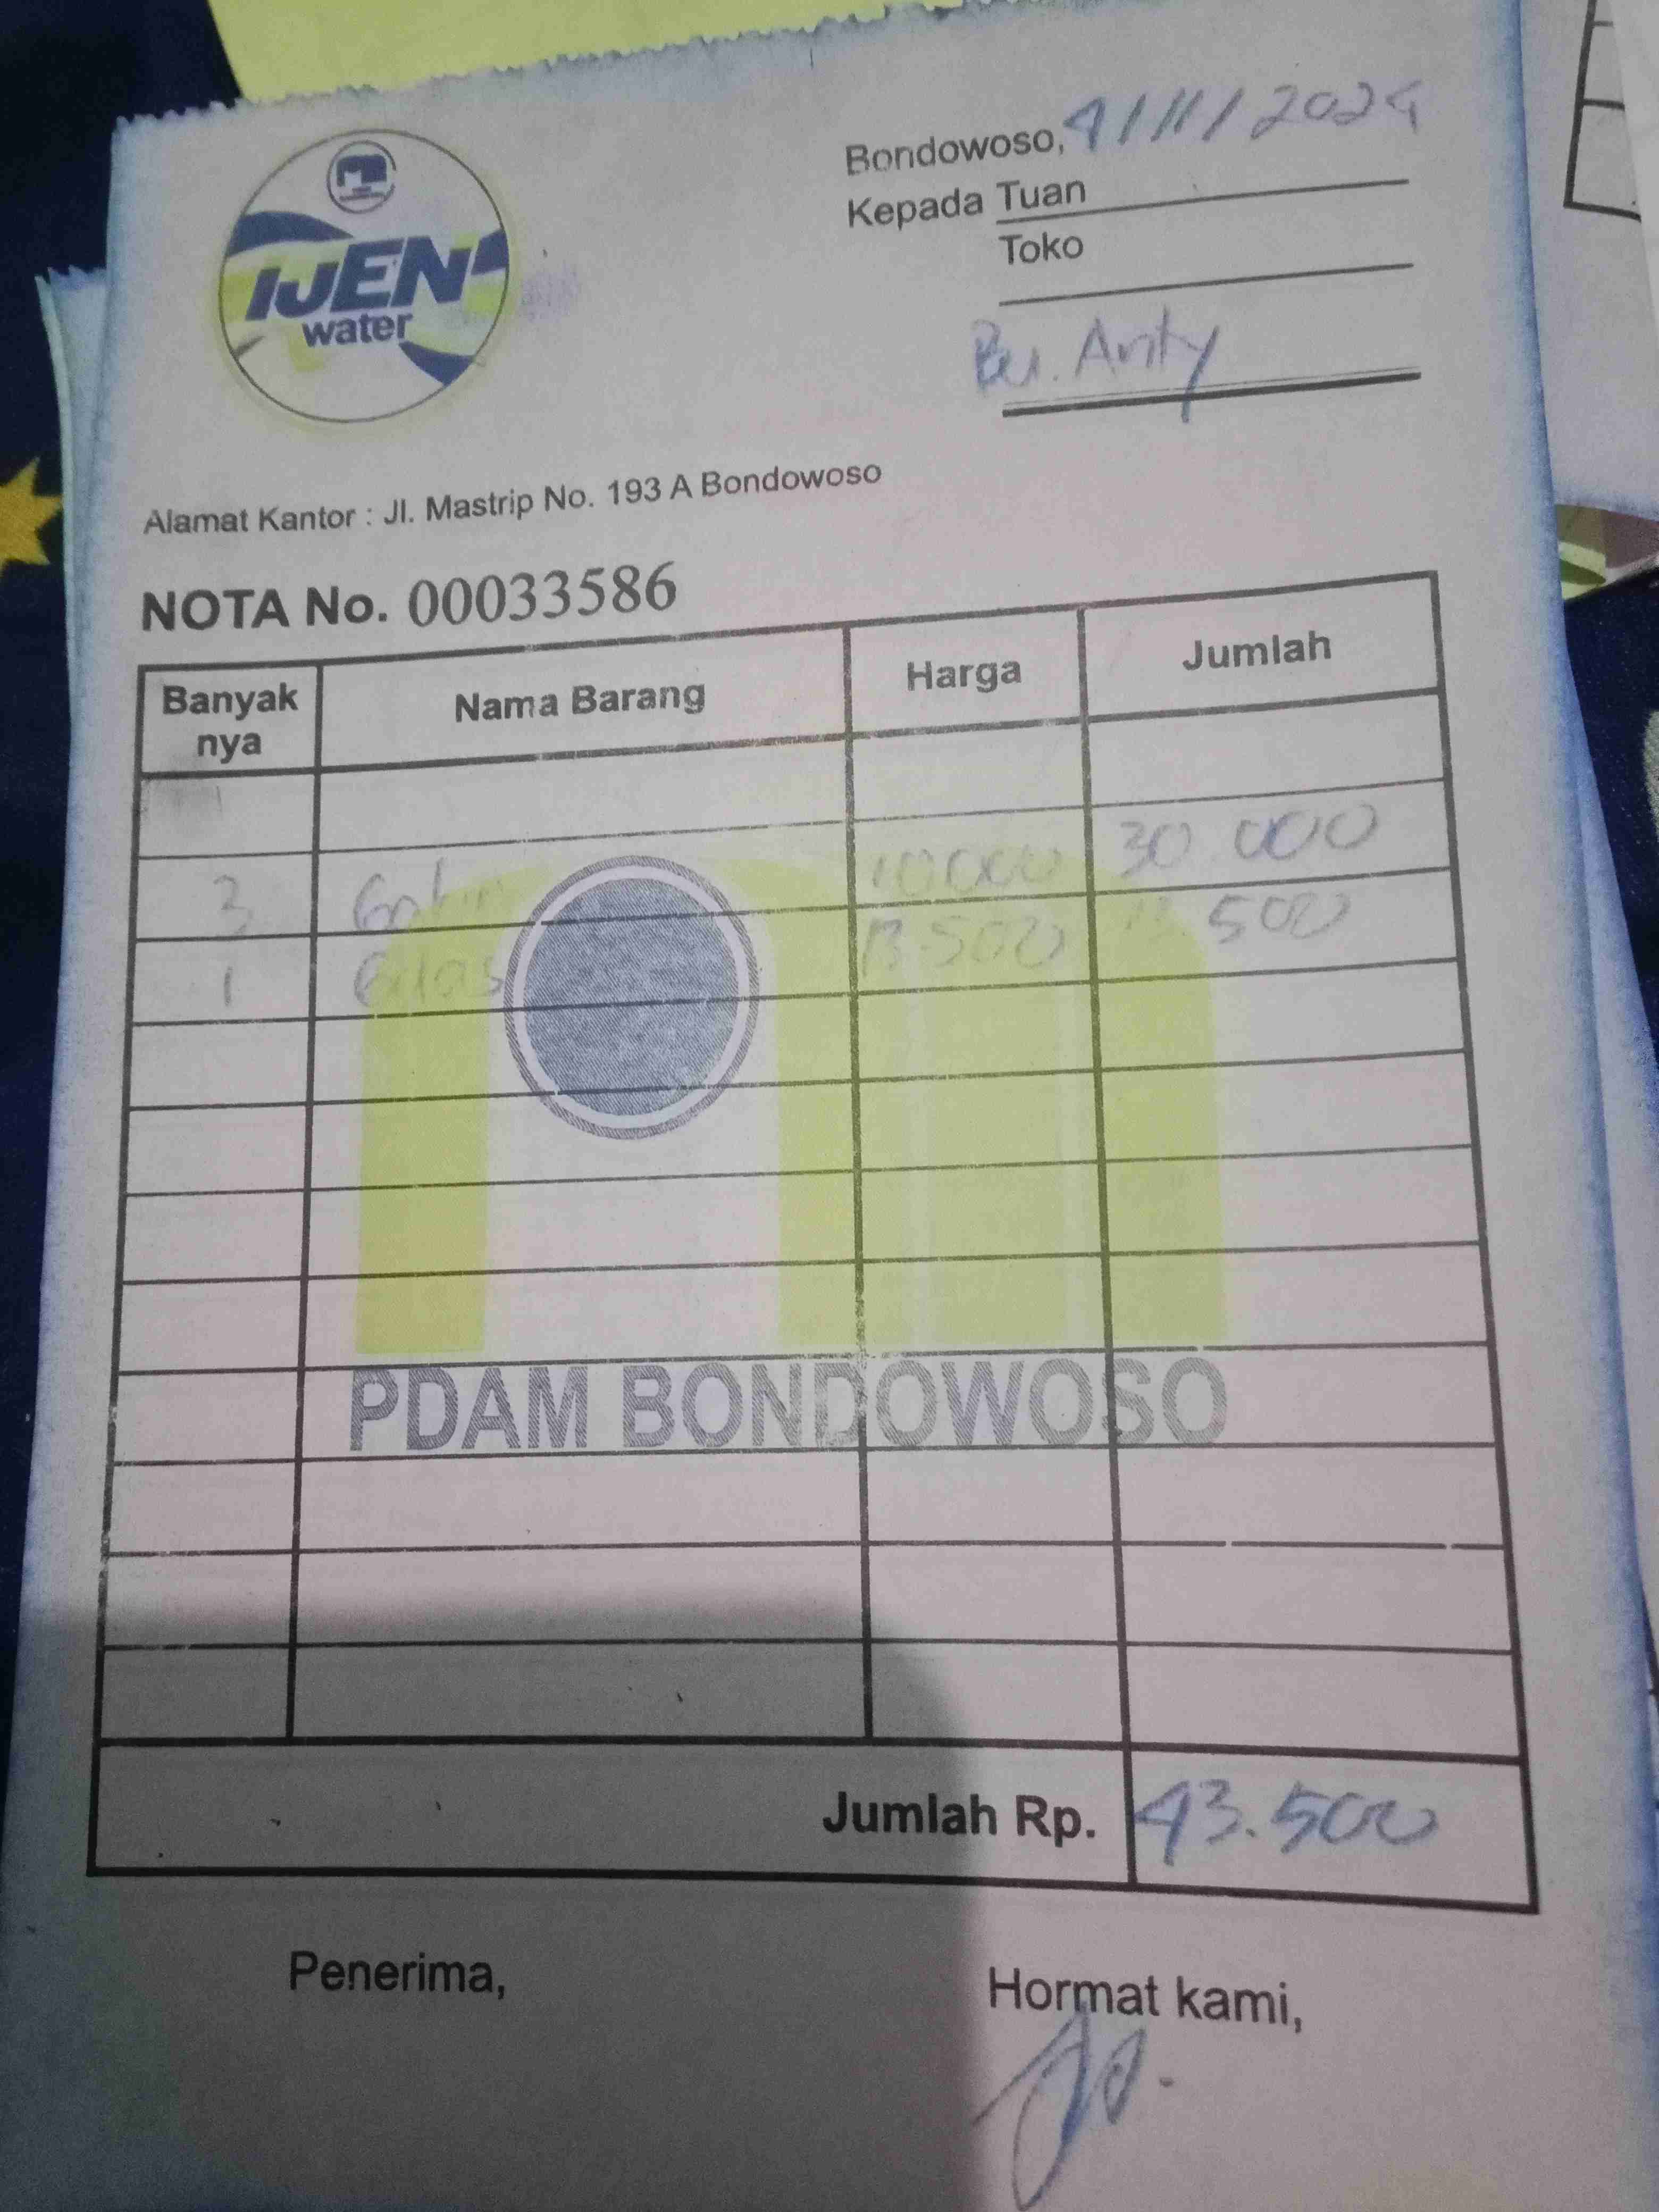 IJEN
water
Bondowoso, 4/11/2024
Kepada Tuan
Toko
Bu. Anty
Alamat Kantor : Jl. Mastrip No. 193 A Bondowoso
NOTA No. 00033586
Banyak nya Nama Barang Harga Jumlah
3 10000 30.000
1 Gelas 13.500 13.500
PDAM BONDOWOSO
Jumlah Rp. 43.500
Penerima, Hormat kami,